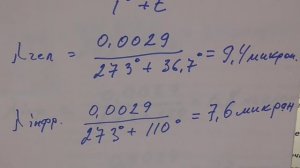 1° + t
λ чел = 0,0029 / 273° + 36,7° = 9,4 микрон.
λ инфр. 0,0029 / 273° + 110° = 7,6 микран